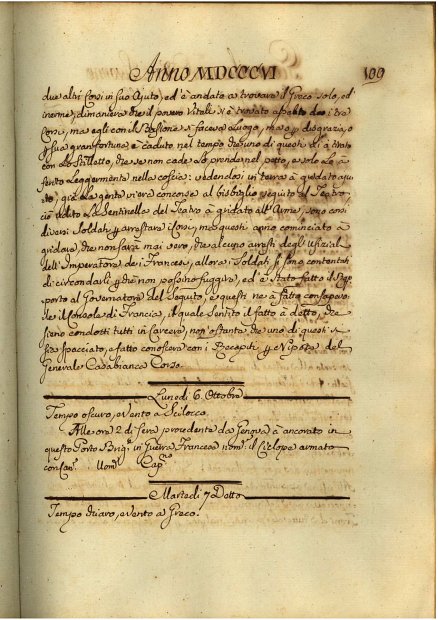 Anno MDCCCVI 199
due altri Corsi in suo Ajuto, ed'è andato a trovare il Greco solo, ed
inerme, dimaniera che il povero Vitali si è trovato assalito da i tre
Corsi, ma egli con il Bastone si faceva Luogo, ma o p disgrazia, o
p sua gran fortuna è caduto nel tempo che uno di questi Li à tirato
con Lo Stilletto, che se non cade Lo prende nel petto, e solo La à
ferito Leggiermente nella coscia: vedendosi in terra à gridato aju=
to, qua La gente vi era concorsa al bisbiglio seguito al Teatro,
ciò udito La Sentinella del Teatro à gridato all'Arme, sono corsi
diversi Soldati p arrestare i Corsi, ma questi anno cominciato a
gridare, che non sarà mai vero, che alcuno arresti degl'Ufizial
dell'Imperatore de i Francesi, allora i Soldati si sono contentati
di circondarli p che non possino fuggire, ed'è stato fatto il Rap=
porto al Governatore del Seguito, e questi ne à fatto consapevo=
le il Console di Francia, il quale sentito il fatto à detto, che
sieno condotti tutti in Carcere, non'ostante che uno di questi si
sia spacciato, e fatto conoscere con i Recapiti p Nipote del
Generale Casabianca Corso.
Lunedì 6. Ottobre
Tempo oscuro, e Vento a Scilocco.
Alle ore 2 di sera procedente da Genova à ancorato in
questo Porto Brigº in Guerra Francese nomº il Ciclope armato
con Canⁱ Uomⁱ Capº
Martedì 7 Detto
Tempo chiaro, e Vento a Greco.